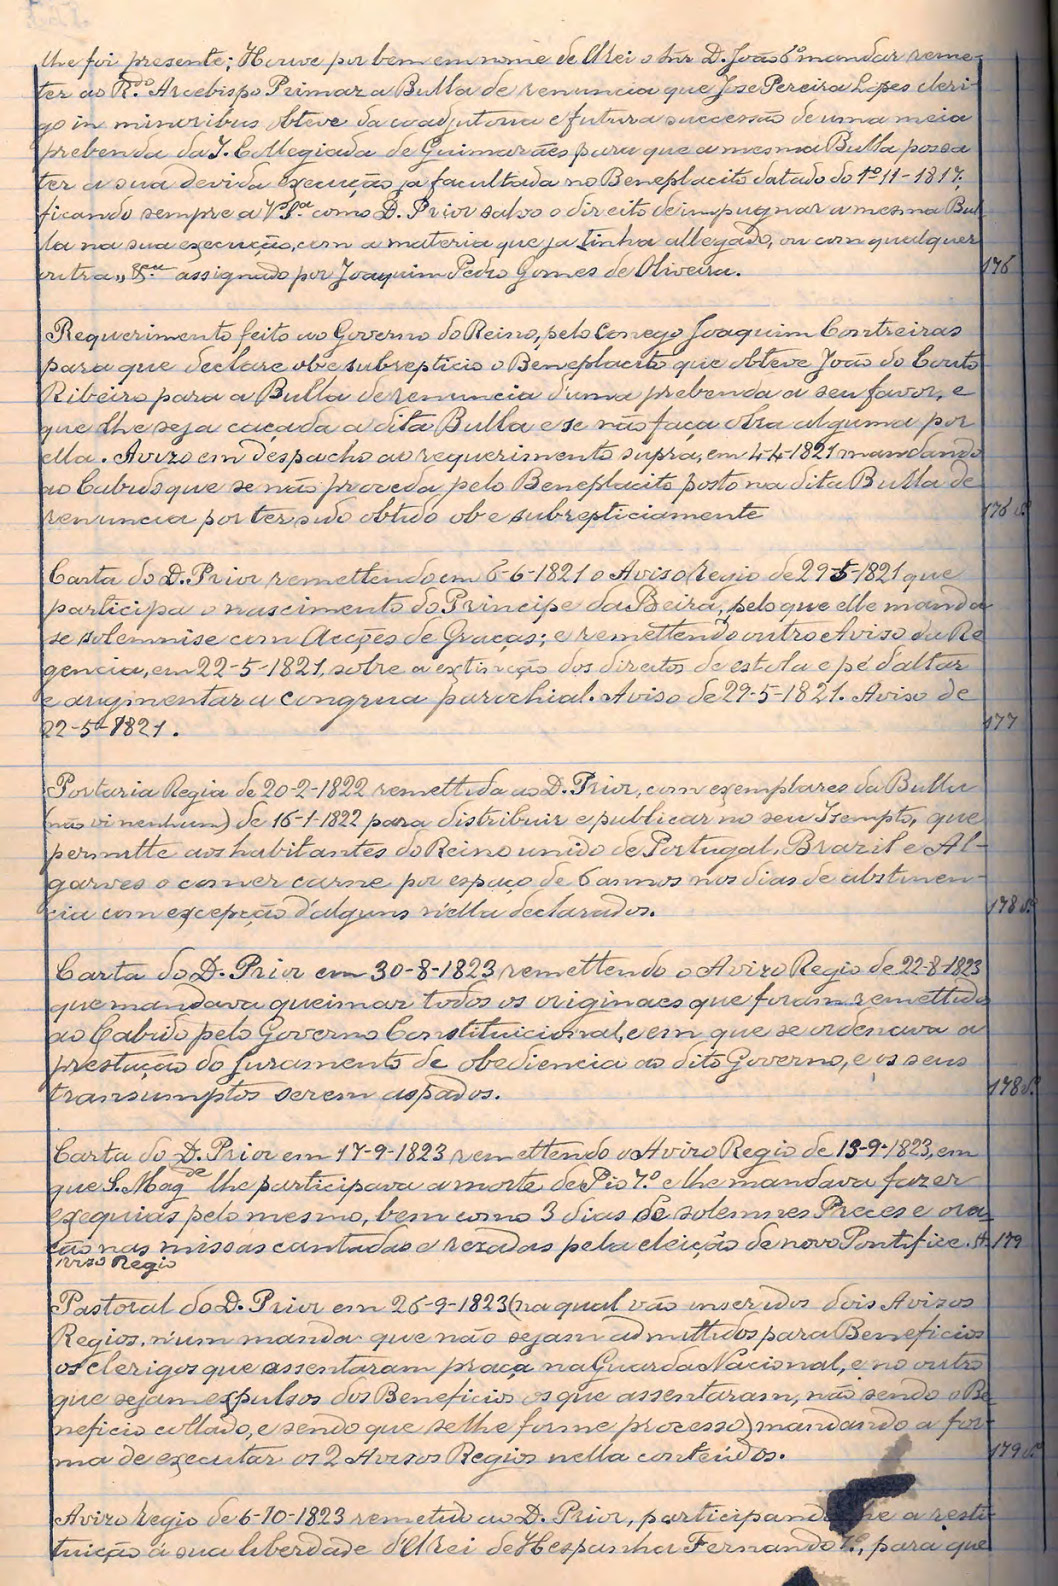 lhe foi presente; Houve por bem em nome de Elrei o Snr D. João 6º mandar reme-
ter ao R.do Arcebispo Primaz a Bulla de renuncia que José Pereira Lopes cleri-
go in minoribus obteve da coadjutoria e futura successão de uma meia
prebenda da I. Collegiada de Guimarães para que a mesma Bulla possa
ter a sua devida execução ja facultada no Beneplacito datado do 1º-11-1817;
ficando sempre a V. S.ª como D. Prior salvo o direito de impugnar a mesma Bul
la na sua execução, com a materia que ja tinha allegado, ou com qualquer
outra,, assignado por Joaquim Pedro Gomes de Oliveira.
176
Requerimento feito ao Governo do Reino, pelo Conego Joaquim Contreiras
para que declare ob e subrepticio o Beneplacito que obteve João do Couto
Ribeiro para a Bulla de renuncia d'uma prebenda a seu favor, e
que lhe seja caçada a dita Bulla e se não faça obra alguma por
ella. Avizo em despacho ao requerimento supra, em 4-4-1821 mandando
ao Cabido que se não proceda pelo Beneplacito posto na dita Bulla de
renuncia por ter sido obtido ob e subrepticiamente
176 v.
Carta do D. Prior remettendo em 6-6-1821 o Aviso regio de 29-5-1821 que
participa o nascimento do Principe da Beira, pelo que elle manda
se solemnise com Acções de Graças; e remettendo outro Aviso da Re
gencia, em 22-5-1821, sobre a extincção dos direitos de estola e pé d'altar
e augmentar a congrua parochial. Aviso de 29-5-1821. Aviso de
22-5-1821.
177
Portaria Regia de 20-2-1822 remettida ao D. Prior, com exemplares da Bulla
(não vi nenhum) de 16-1-1822 para distribuir e publicar no seu Isempto, que
permitte aos habitantes do Reino unido de Portugal, Brazil e Al-
garves o comer carne por espaço de 6 annos nos dias de abstinen-
cia com excepção d'alguns n'ella declarados.
178 v.
Carta do D. Prior em 30-8-1823 remettendo o Avizo Regio de 22-8-1823
que mandava queimar todos os originaes que foram remettidos
ao Cabido pelo Governo Constituicional, e em que se ordenava a
prestação do Juramento de obediencia ao dito Governo, e os seus
transumptos serem aspados.
178 v.
Carta do D. Prior em 17-9-1823 remettendo o Avizo Regio de 13-9-1823, em
que S. Mag.de lhe participava a morte de Pio 7.º e lhe mandava fazer
exequias pelo mesmo, bem como 3 dias de solemnes Preces e ora
ção nas missas cantadas e rezadas pela eleição de novo Pontifice. A
viso Regio
179
Pastoral do D. Prior em 26-9-1823 (na qual vão inseridos dois Avisos
Regios, n'um manda que não sejam admittidos para Beneficios
os clerigos que assentaram praça na Guarda Nacional, e no outro
que sejam expulsos dos Beneficios os que assentaram, não sendo o Be
neficio collado, e sendo que se lhe forme processo) mandando a for-
ma de executar os 2 Avisos Regios nella contéudos.
179 v.
Avizo regio de 6-10-1823 remetido ao D. Prior, participando a resti-
tuição á sua liberdade d'Elrei de Hespanha Fernando 7.º, para que